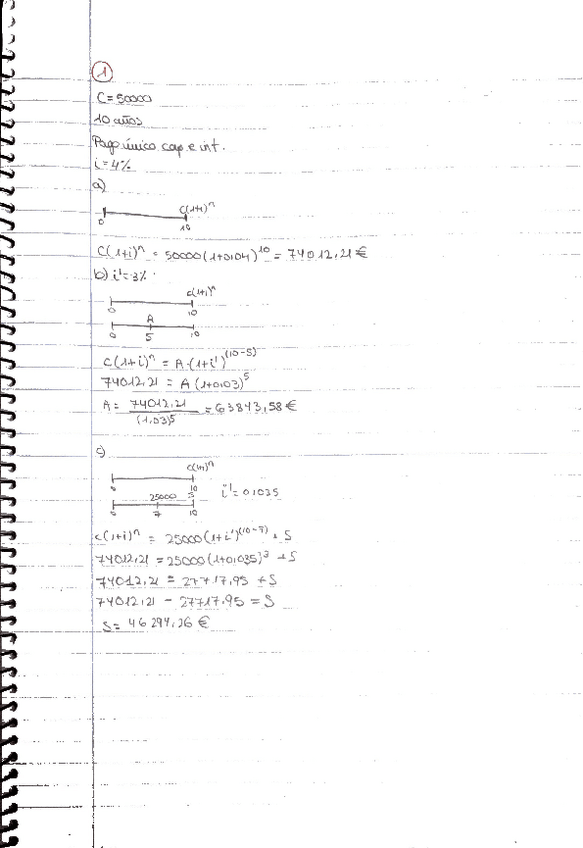 1
C=50000
10 años
Pago único cap e int.
i=4%
a)
C(1+i)^n
0 10
C(1+i)^n = 50000(1+0,04)^10 = 74012,21 €
b) i'=3%
C(1+i)^n
0 10
A
0 5 10
C(1+i)^n = A·(1+i')^(10-5)
74012,21 = A(1+0,03)^5
A = 74012,21 / (1,03)^5 = 63843,58 €
c)
C(1+i)^n
0 10
25000 S
i'=0,035
0 7 10
C(1+i)^n = 25000(1+i')^(10-7) + S
74012,21 = 25000(1+0,035)^3 + S
74012,21 = 27717,95 + S
74012,21 - 27717,95 = S
S= 46294,26 €